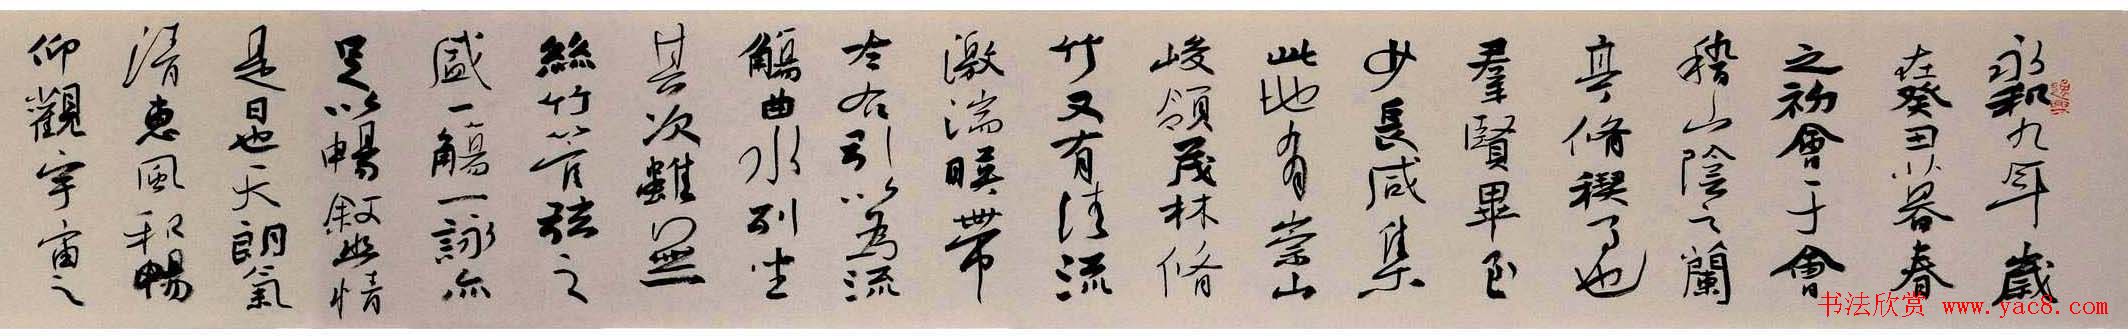 永和九年歲
在癸丑暮春
之初會于會
稽山陰之蘭
亭脩稧事也
羣賢畢至
少長咸集
此地有崇山
峻領茂林脩
竹又有清流
激湍暎帶
左右引以為流
觴曲水列坐
其次雖無
絲竹管弦之
盛一觴一詠亦
足以暢敘幽情
是日也天朗氣
清惠風和暢
仰觀宇宙之
书法欣赏 www.yac8.com